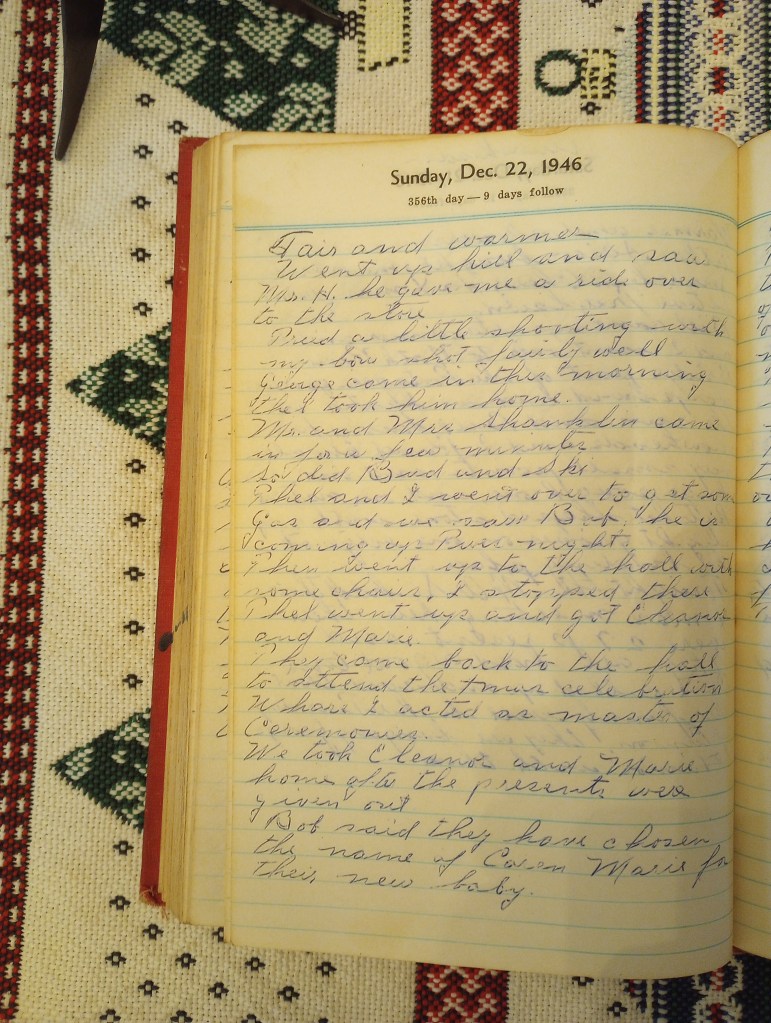 Sunday, Dec. 22, 1946
356th day — 9 days follow
Fair and warmer
Went up hill and saw
Mr. H. he gave me a ride over
to the store
Pried a little shooting with
my bow shot fairly well
George came in this morning
Phel took him home.
Mr. and Mrs Shanklin came
in for a few minutes
so did Bud and Ski
Phel and I went over to get som
gas and we saw Bob, he is
coming up Tues-night.
Then went up to the hall with
some chairs, I stopped there
Phel went up and got Eleanor
and Marie
They came back to the hall
to attend the +mas celebration
Where I acted as master of
Ceremonies.
We took Eleanor and Marie
home after the presents were
given out
Bob said they have chosen
the name of Caren Marie for
their new baby.